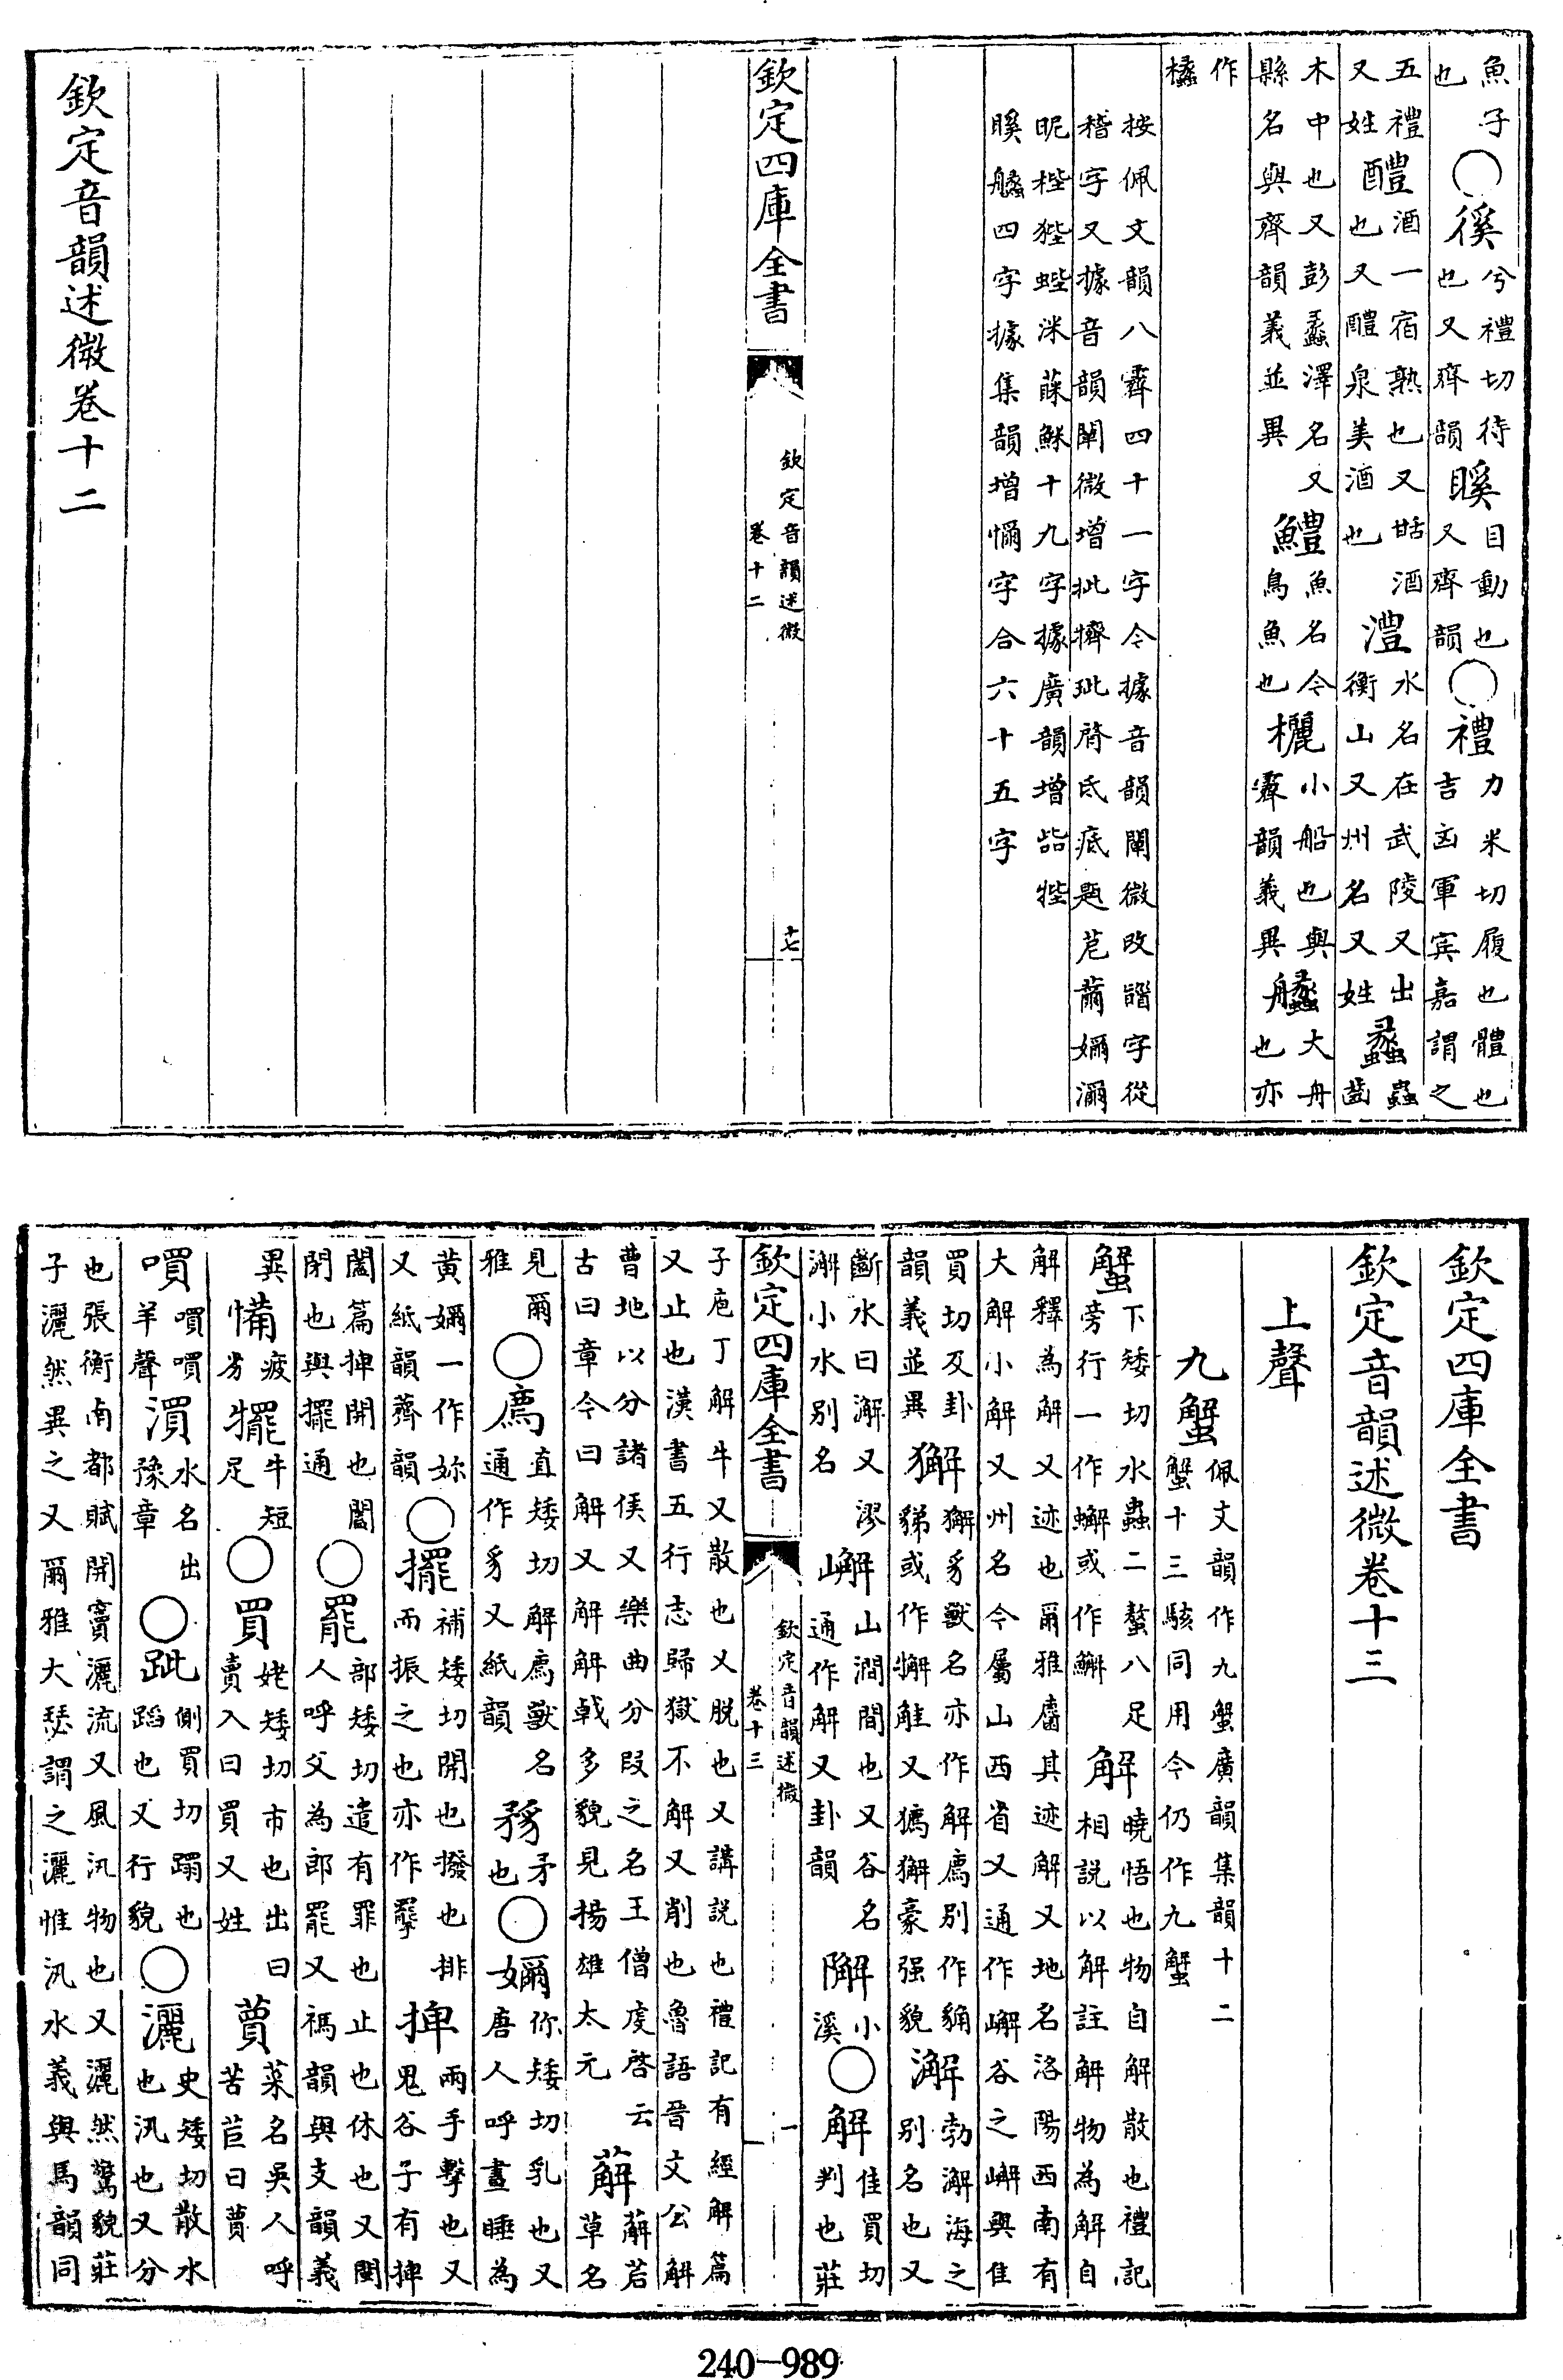 魚子也〇徯兮禮切待也又齊韻䁟目動也又齊韻〇禮力米切履也體也吉凶軍賓嘉謂之
五禮又姓醴酒一宿熟也又甜酒也又醴泉美酒也澧水名在武陵又出衡山又州名又姓蠡蟲齧
木中也又彭蠡澤名又縣名與齊韻義並異鱧魚名今鳥魚也欐小船也與霽韻義異艬大舟也亦
作欚
按佩文韻八霽四十一字今據音韻闡微改䭫字從
稽字又據音韻闡微增批擠玼膌氐底題苨薾嬭瀰
昵梐狴蛙洣蒤鮇十九字據廣韻增啙㹂
䁟艬四字據集韻增懶字合六十五字
欽定四庫全書
欽定音韻述微
卷十二
十七
欽定音韻述微卷十二
欽定四庫全書
欽定音韻述微卷十三
上聲
九蟹佩文韻作九蟹廣韻集韻十二蟹十三駭同用今仍作九蟹
蟹下矮切水蟲二螯八足旁行一作蠏或作䲒解曉悟也物自解散也禮記相說以解註解物為解自
解釋為解又迹也爾雅麕其迹解又地名洛陽西南有大解小解又州名今屬山西省又通作嶰谷之嶰與佳
買切及卦韻義並異獬獬豸獸名亦作解廌別作貈貕或作㺒觟又獁獬豪强貌澥勃澥海之別名也又
斷水曰澥又漻澥小水別名嶰山澗間也又谷名通作解又卦韻䲒小溪〇解佳買切判也莊
欽定四庫全書
欽定音韻述微
卷十三
一
子庖丁解牛又散也又脫也又講說也禮記有經解篇又止也漢書五行志歸獄不解又削也魯語晉文公解
曹地以分諸侯又樂曲分段之名王僧虔啓云古曰章今曰解又解解戟多貌見揚雄太元薢薢茩草名
見爾雅〇廌直矮切解廌獸名通作豸又紙韻豥矛也〇嬭你矮切乳也又唐人呼晝睡為
黃嬭一作妳又紙韻薺韻〇擺補矮切開也撥也排而振之也亦作㩺捭兩手擊也又鬼谷子有捭
闔篇捭開也闔閉也與擺通〇罷部矮切遣有罪也止也休也又閩人呼父為郎罷又禡韻與支韻義
異㤳疲劣犤牛短足〇買姥矮切市也出曰賣入曰買又姓蕒菜名吳人呼苦苣曰蕒
嘪嘪嘪羊聲湨水名出豫章〇跐側買切蹋也蹈也又行貌〇灑史矮切散水也汎也又分
也張衡南都賦開竇灑流又風汎物也又灑然驚貌莊子灑然異之又爾雅大瑟謂之灑惟汎水義與馬韻同
240-989